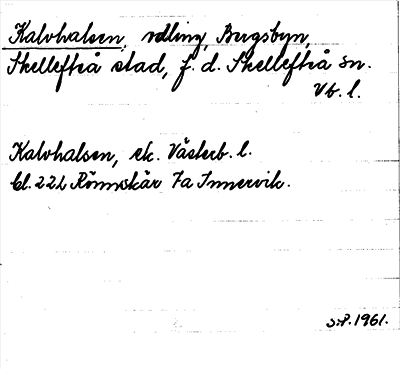 Kalvhalsen, odling, Bergsbyn,
Skellefteå stad, f. d. Skellefteå sn.
Vb. l.
Kalvhalsen, ek. Västerb. l.
bl. 22L Rönnskär 7a Innervik.
S.P. 1961.